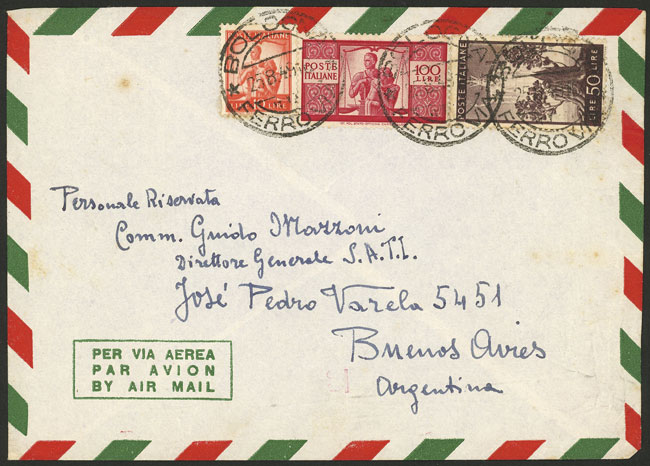 POSTE ITALIANE
100 LIRE
POSTE ITALIANE
LIRE 50
FERROVIA
Personale Riservata
Comm. Guido Mazzoni
Direttore Generale S.A.T.I.
José Pedro Varela 5451
Buenos Aires
Argentina
PER VIA AEREA
PAR AVION
BY AIR MAIL